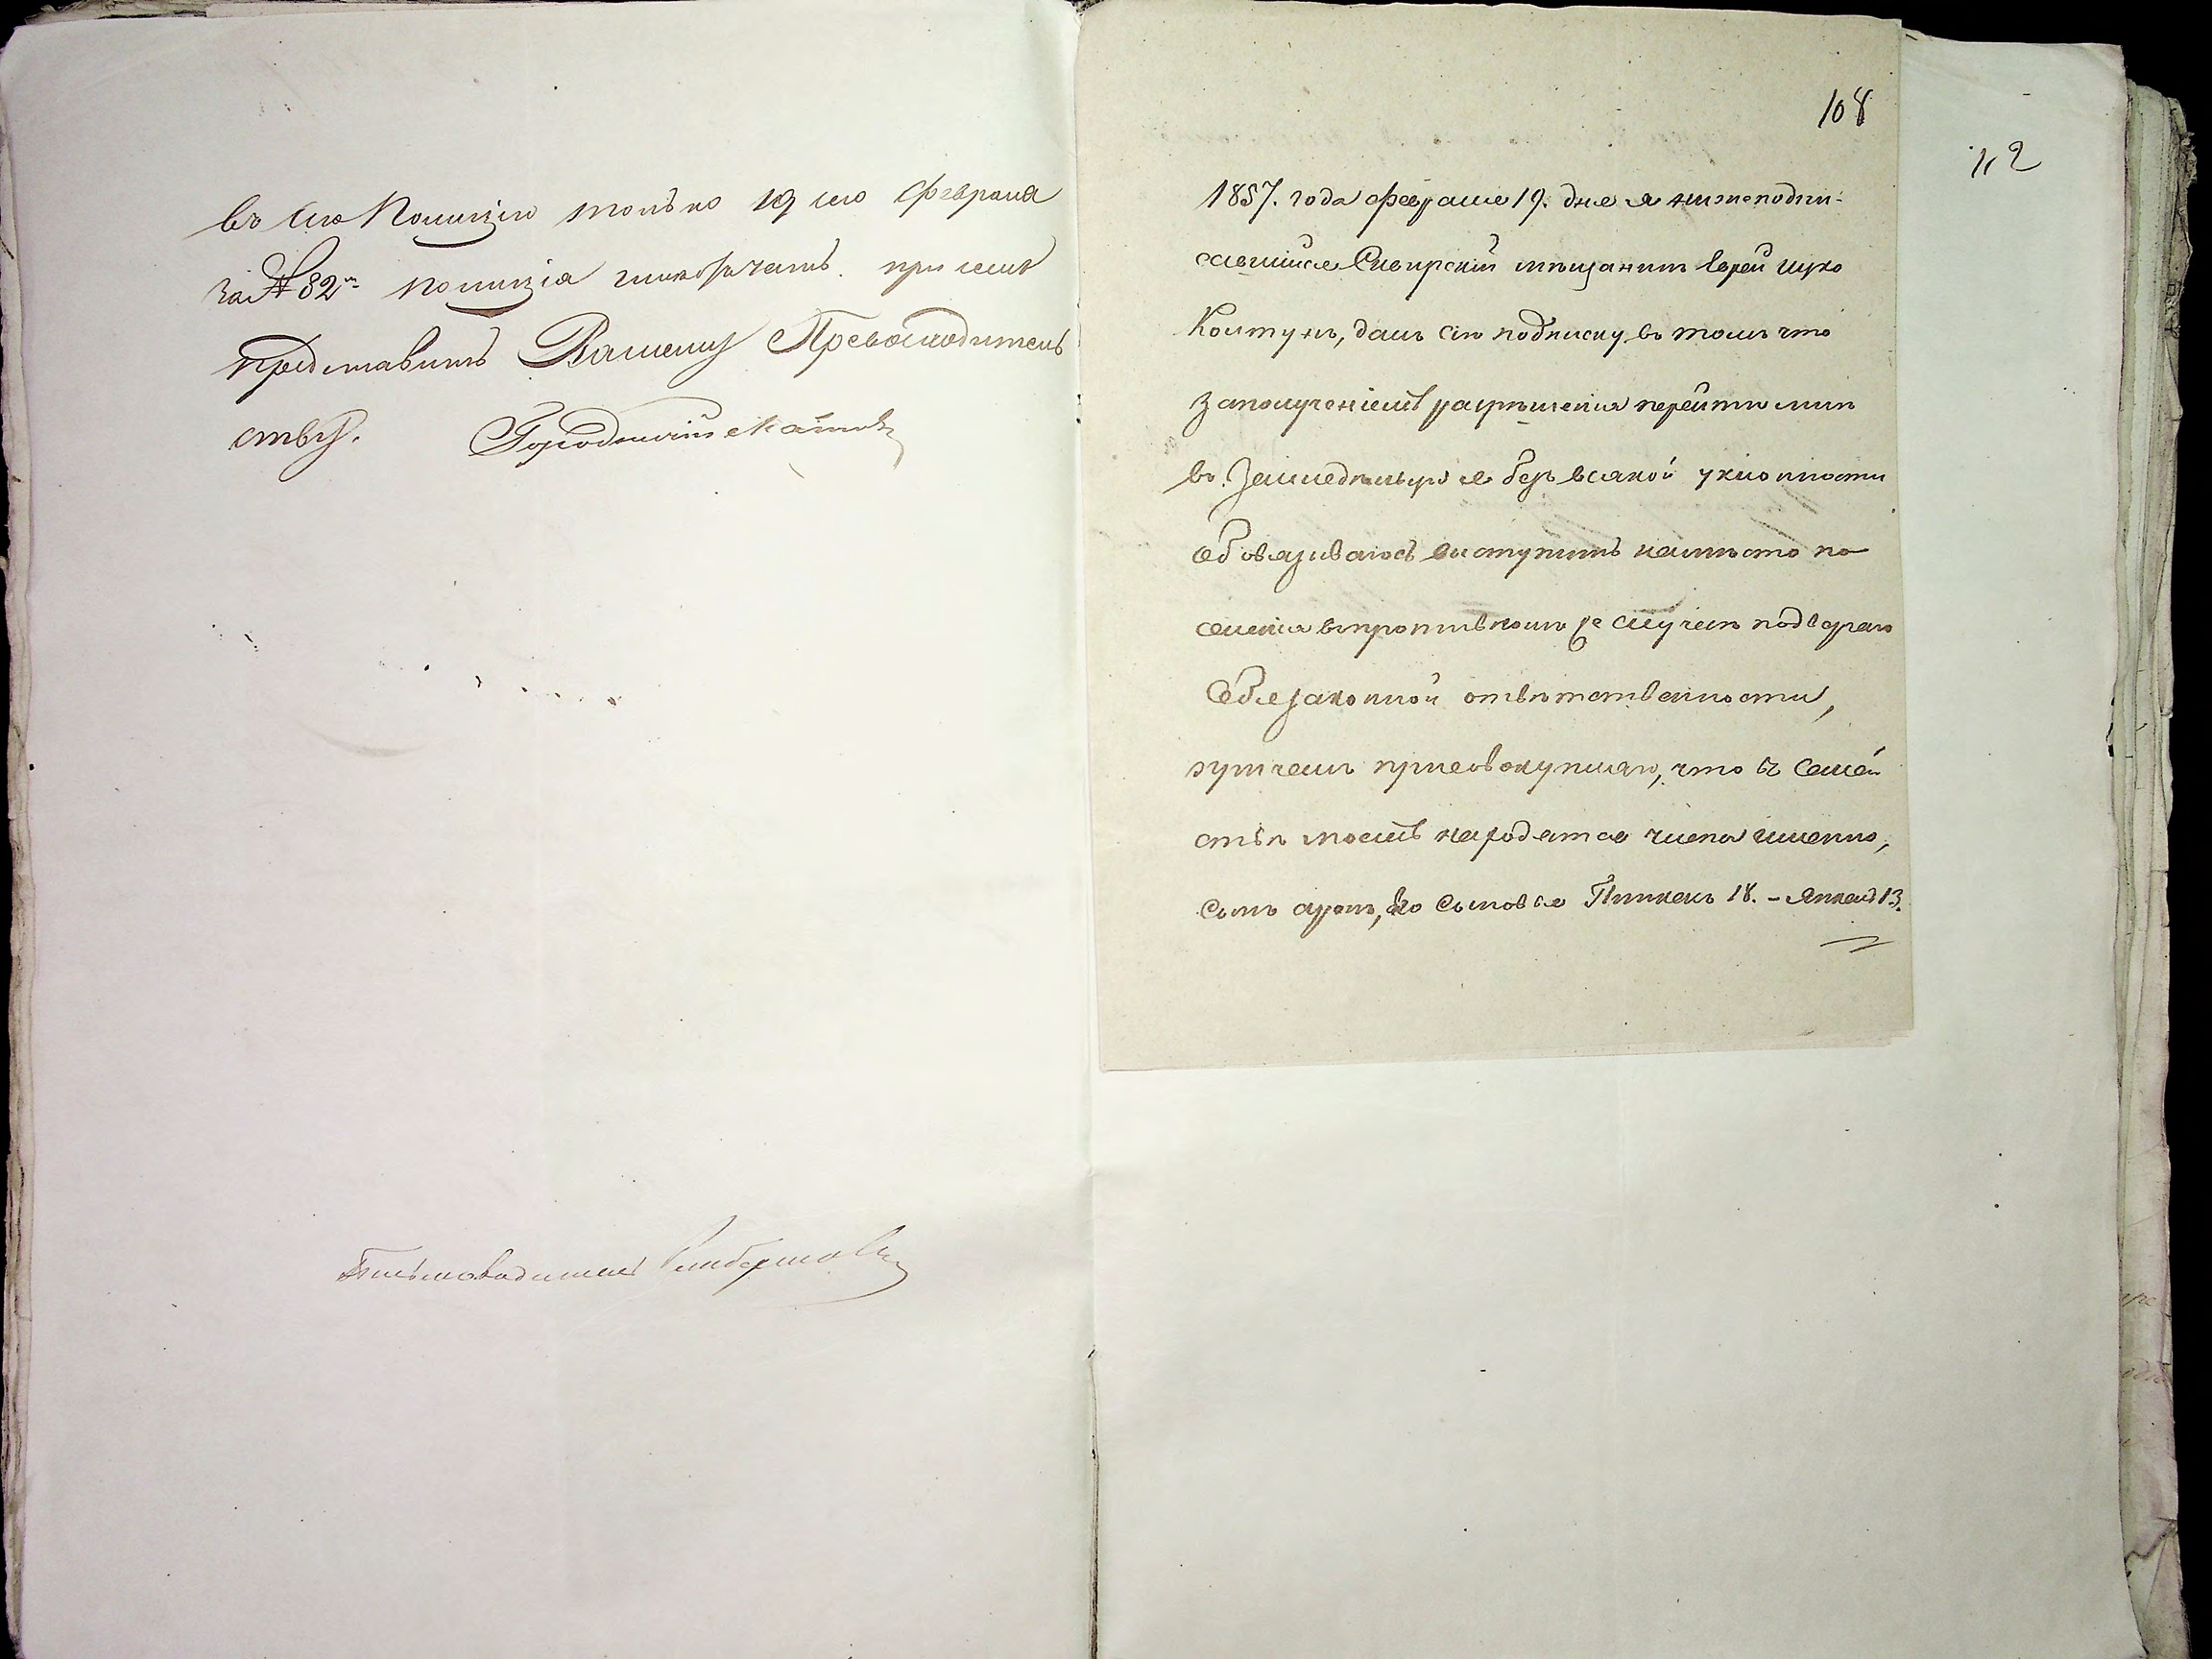 въ сію Полицію только 19 сего февраля
за № 82м полиція честь имѣетъ при семъ
представить Вашему Превосходитель
ству. Городничій
Письмоводитель
108
112
1857. года февраля 19. дня я нижеподпи-
савшійся Сибирскій мѣщанинъ Еврей Ицко
Колтунъ, далъ сію подписку въ томъ что
заполученіемъ разрѣшенія перейти мнѣ
въ безъ всякой уклонности
обовязиваюсь выступить намѣсто по
селенія впротивномъ же случаѣ подвергаю
себя законной отвѣтственности,
путчемъ присовокупляю, что въ семей
ствѣ моемъ находятся члены именно,
Самъ Ицко, Сыновья Пинкасъ 18. - Янкель 13.